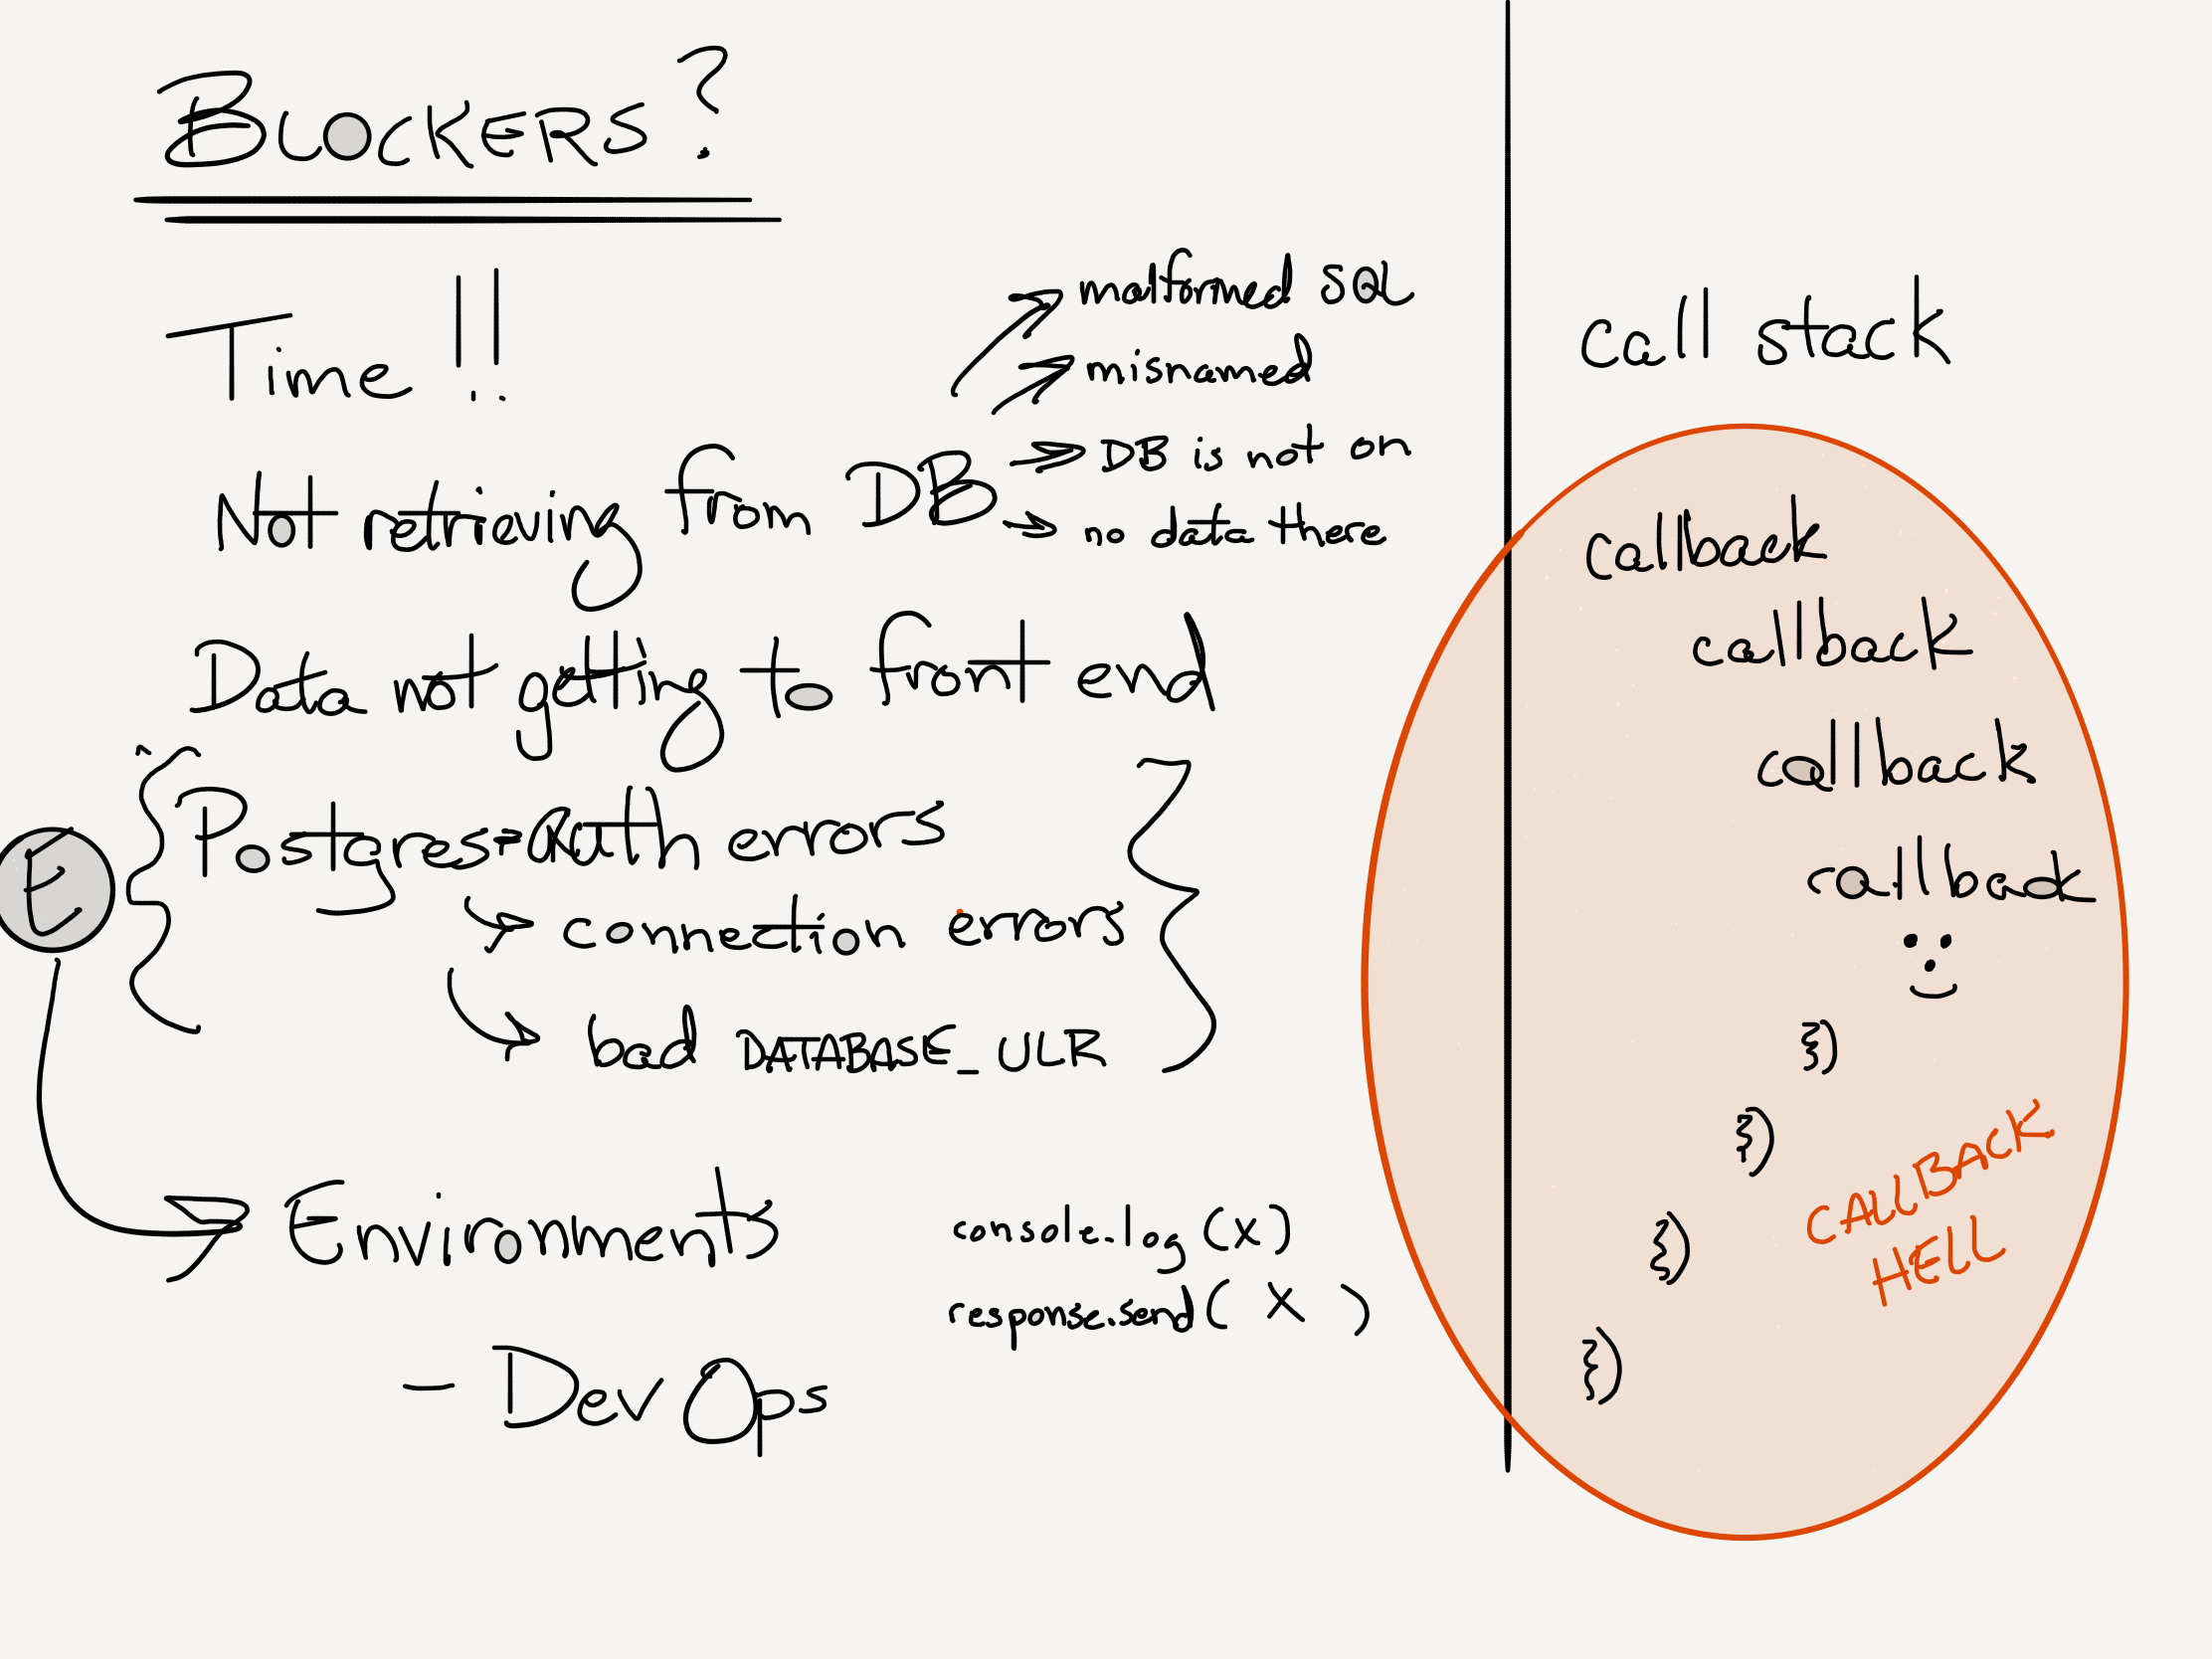 BLOCKERS?
Time!!
malformed SQL
mismamed
DB is not on
Not retrieving from DB
no data there
Data not getting to front end
Postgres-Auth errors
connection errors
bad DATABASE_ULR
E
Environments
console.log(x)
response.send( x )
- DevOps
call stack
callback
callback
callback
callback
})
})
})
})
CALLBACK
HELL